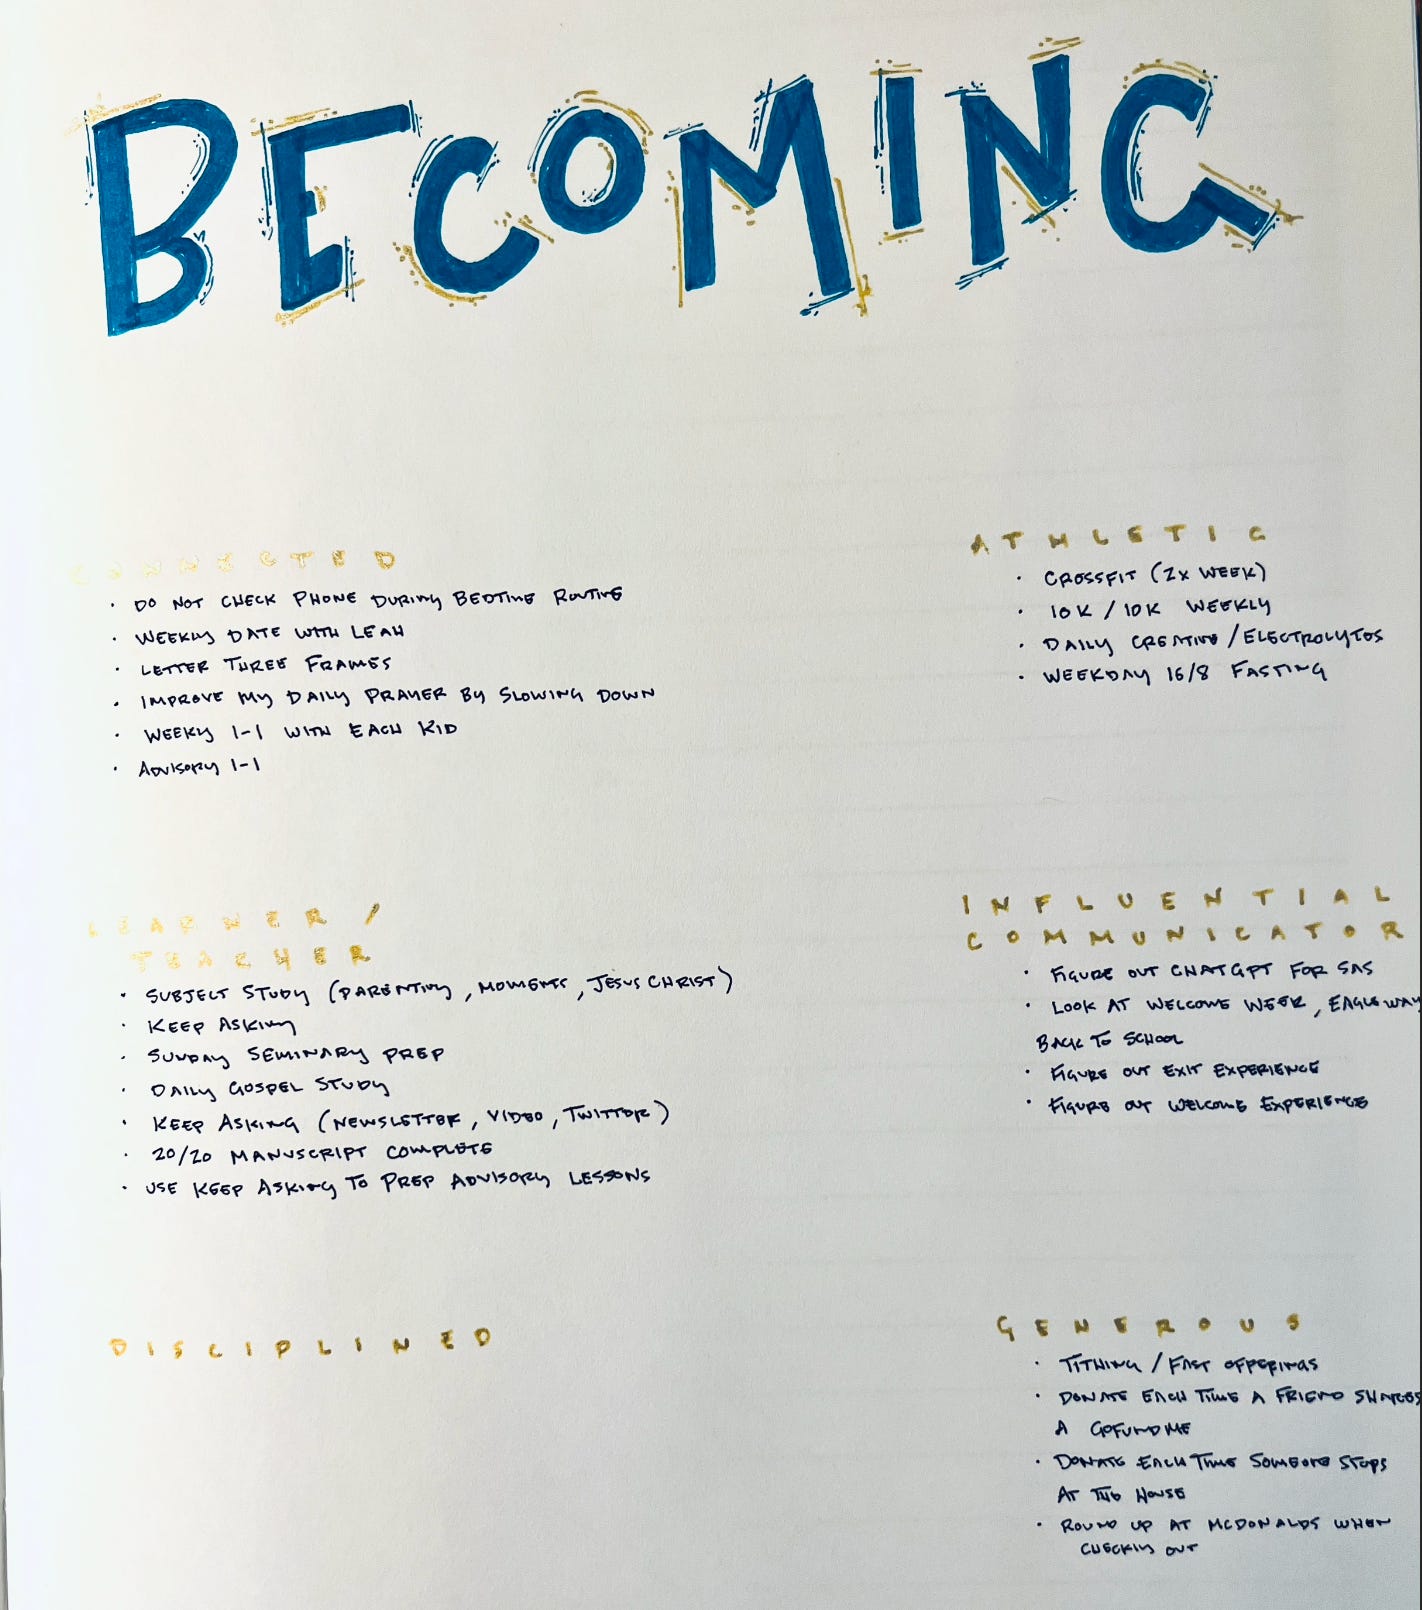 BECOMING
CONNECTED
• DO NOT CHECK PHONE DURING BEDTIME ROUTINE
• WEEKLY DATE WITH LEAH
• LETTER THREE FRAMES
• IMPROVE MY DAILY PRAYER BY SLOWING DOWN
• WEEKLY 1-1 WITH EACH KID
• ADVISORY 1-1
ATHLETIC
• CROSSFIT (2X WEEK)
• 10K / 10K WEEKLY
• DAILY CREATINE / ELECTROLYTES
• WEEKDAY 16/8 FASTING
LEARNER /
TEACHER
• SUBJECT STUDY (PARENTING, MOMENTS, JESUS CHRIST)
• KEEP ASKING
• SUNDAY SEMINARY PREP
• DAILY GOSPEL STUDY
• KEEP ASKING (NEWSLETTER, VIDEO, TWITTER)
• 20/20 MANUSCRIPT COMPLETE
• USE KEEP ASKING TO PREP ADVISORY LESSONS
INFLUENTIAL
COMMUNICATOR
• FIGURE OUT CHATGPT FOR SAS
• LOOK AT WELCOME WEEK, EAGLE WAY
BACK TO SCHOOL
• FIGURE OUT EXIT EXPERIENCE
• FIGURE OUT WELCOME EXPERIENCE
DISCIPLINED
GENEROUS
• TITHING / FAST OFFERINGS
• DONATE EACH TIME A FRIEND SHARES
A GOFUNDME
• DONATE EACH TIME SOMEONE STOPS
AT THE HOUSE
• ROUND UP AT MCDONALDS WHEN
CHECKING OUT